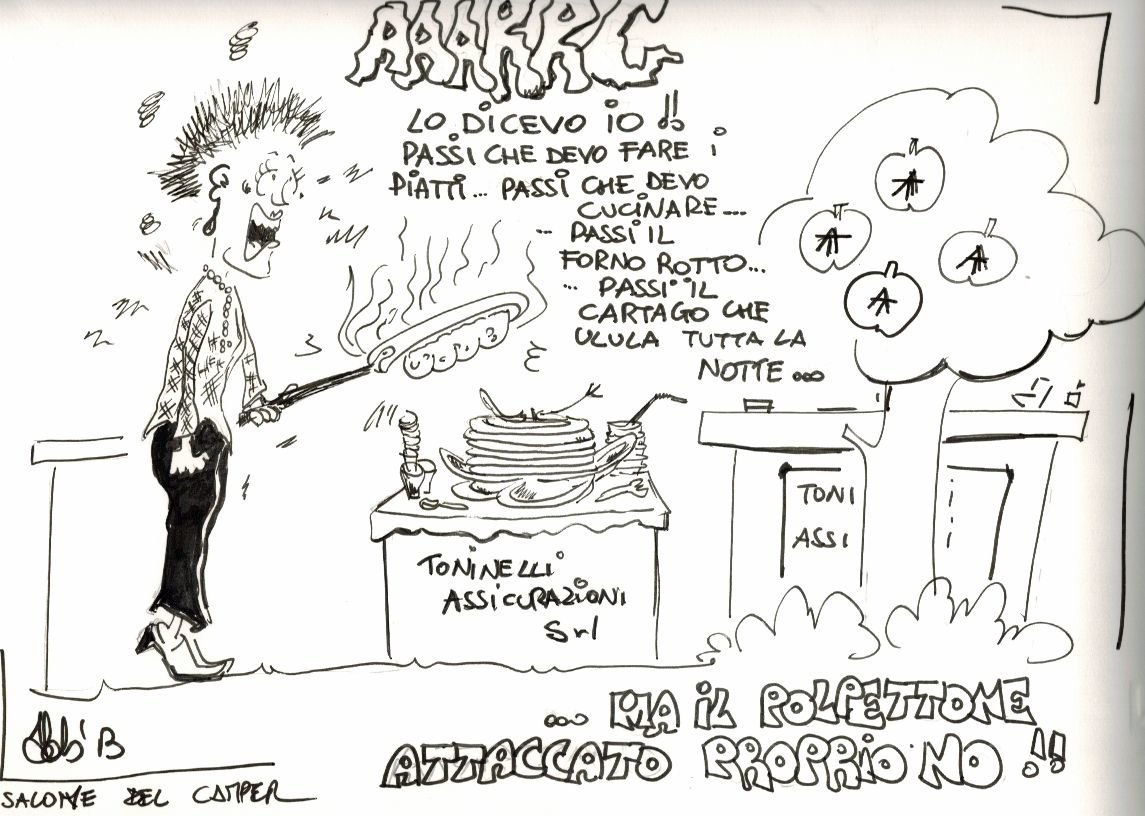 AAARRG
LO DICEVO IO !!
PASSI CHE DEVO FARE i
PIATTI... PASSI CHE DEVO
CUCINARE...
... PASSI IL
FORNO ROTTO...
... PASSI IL
CARTAGO CHE
È
ULULA TUTTA LA
NOTTE ...
A
A
A
A
TONI
ASSI
TONINELLI
ASSICURAZIONI
Srl
... MA IL POLPETTONE
ATTACCATO PROPRIO NO !!
SALONE DEL CAMPER